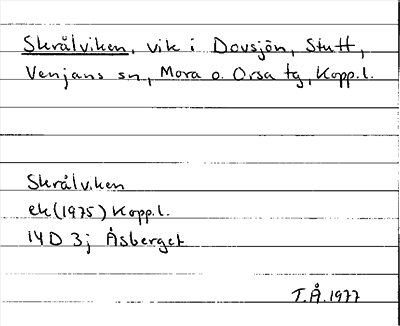 Skrålviken, vik i Dovsjön, Stutt,
Venjans sn, Mora o. Orsa tg, Kopp.l.
Skrålviken
ek (1975) Kopp.l.
14D 3j Åsberget
T.Å. 1977